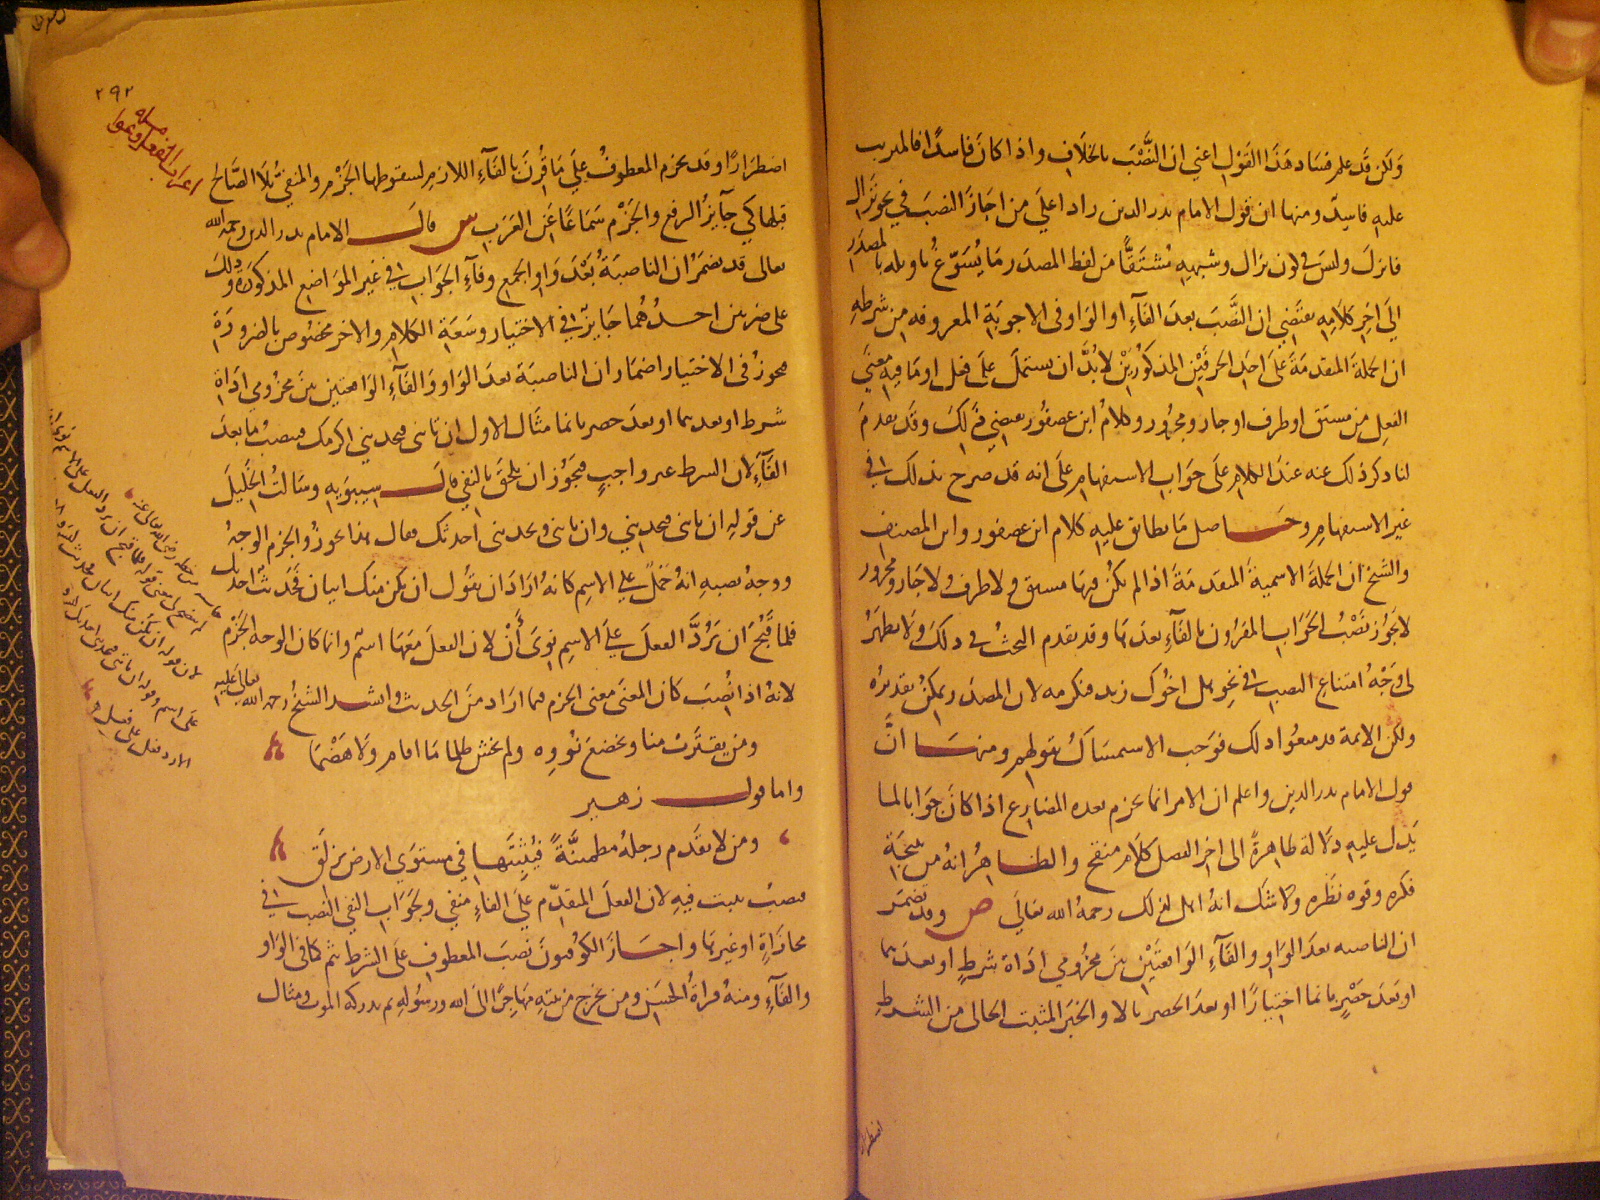 ولكن قد علم فساد هذا القول اعني ان النصب بالخلاف واذا كان فاسدًا فالمرتب
عليه فاسد ومنها ان قول الامام بدر الدين رادا على من اجاز النصب في نحو نزال
فانزل وليس في لون نزال وشبهه مشتقًا من لفظ المصدر ما يسوّغ تاويله بالمصدر
الى اخر كلامه يقتضي ان النصب بعد الفآء او الواو في الاجوبة المعروفه من شرطه
ان الجملة المقدمة على احد الحرفين المذكورين لا بدّ ان تشتمل على فعل او ما فيه معنى
الفعل من مشتق او ظرف او جار ومجرور وكلام ابن عصفور يقتضي ذلك وقد تقدم
لنا ذكر ذلك عنه عند الكلام على جواب الاستفهام على انه قد صرح بذلك في
غير الاستفهام وحاصل ما تطابق عليه كلام ابن عصفور وابن المصنف
والشيخ ان الجملة الاسمية المقدمة اذا لم يكن فيها مشتق ولا ظرف ولا جار ومجرور
لا يجوز نصب الجواب المقرون بالفآء بعدها وقد تقدم البحث في ذلك ولا يظهر
لي وجه امتناع النصب في نحو هل اخوك زيد فنكرمه لان المصدر يمكن تقديره
ولكن الائمة قد منعوا ذلك فوجب الاستمساك بقولهم ومنها ان
قول الامام بدر الدين واعلم ان الامر انما يجزم بعده المضارع اذا كان جوابا لما
يدل عليه دلالة ظاهرة الى اخر الفصل كلام منقح والظاهر انه من نتيجة
فكره وقوه نظره ولا شك انه اهل لذلك رحمه الله تعالى ص وقد تضمر
ان الناصبه بعد الواو والفآء الواقعتين بين مجزومي اداة شرط او بعدهما
او بعد حصر بانما اختيارًا او بعد الحصر بالا والخبر المثبت الخالي من الشرط
اضطرارا
٢٩٢
اعراب الفعل وعوامله
اضطرارًا وقد يجزم المعطوف على ما قرن بالفآء اللازم لسقوطها الجزم والمنفي بلا الصالح
قبلها كي جآيز الرفع والجزم سماعًا عن العرب س قال الامام بدر الدين رحمه الله
تعالى قد تضمر ان الناصبة بعد واو الجمع وفآء الجواب في غير المواضع المذكورة وذلك
على ضربين احدهما جايز في الاختيار وسعة الكلام والاخر مخصوص بالضرورة
فيجوز في الاختيار اضمار ان الناصبة بعد الواو والفآء الواقعتين بين مجزومي اداة
شرط او بعدهما او بعد حصر بانما مثال الاول ان تاتني فتحدثني اكرمك فينصب ما بعد
الفآء لان الشرط غير واجب فيجوز ان يلحق بالنفي قال سيبويه وسالت الخليل
عن قوله ان تاتني فتحدثني وان تاتني وتحدثني احدثك فقال هذا يجوز والجزم الوجه
ووجه نصبه انه حمل على الاسم كانه اراد ان يقول ان يكن منك اتيان فحديث احدثك
فلما قبح ان يردّ الفعل على الاسم نوى أن لان الفعل معها اسم وانما كان الوجه الجزم
لانه اذا نصب كان المعنى معنى الجزم فيما اراد من الحديث وانشد الشيخ رحمه الله تعالى عليه
ومن يقترب منا ويخضع نؤوه ولم يخش ظلما ما اقام ولا هضما
واما قول زهير
ومن لا يقدم رجله مطمئنة فيثبتها في مستوى الارض يزلق
فنصب يثبت فيه لان الفعل المقدم على الفاء منفي وجواب النفي النصب في
مجازاة او غيرها واجاز الكوفيون نصب المعطوف على الشرط بثم كما في الواو
والفآء ومنه قراة الحسن ومن يخرج من بيته مهاجرًا الى الله ورسوله ثم يدركه الموت ومثال